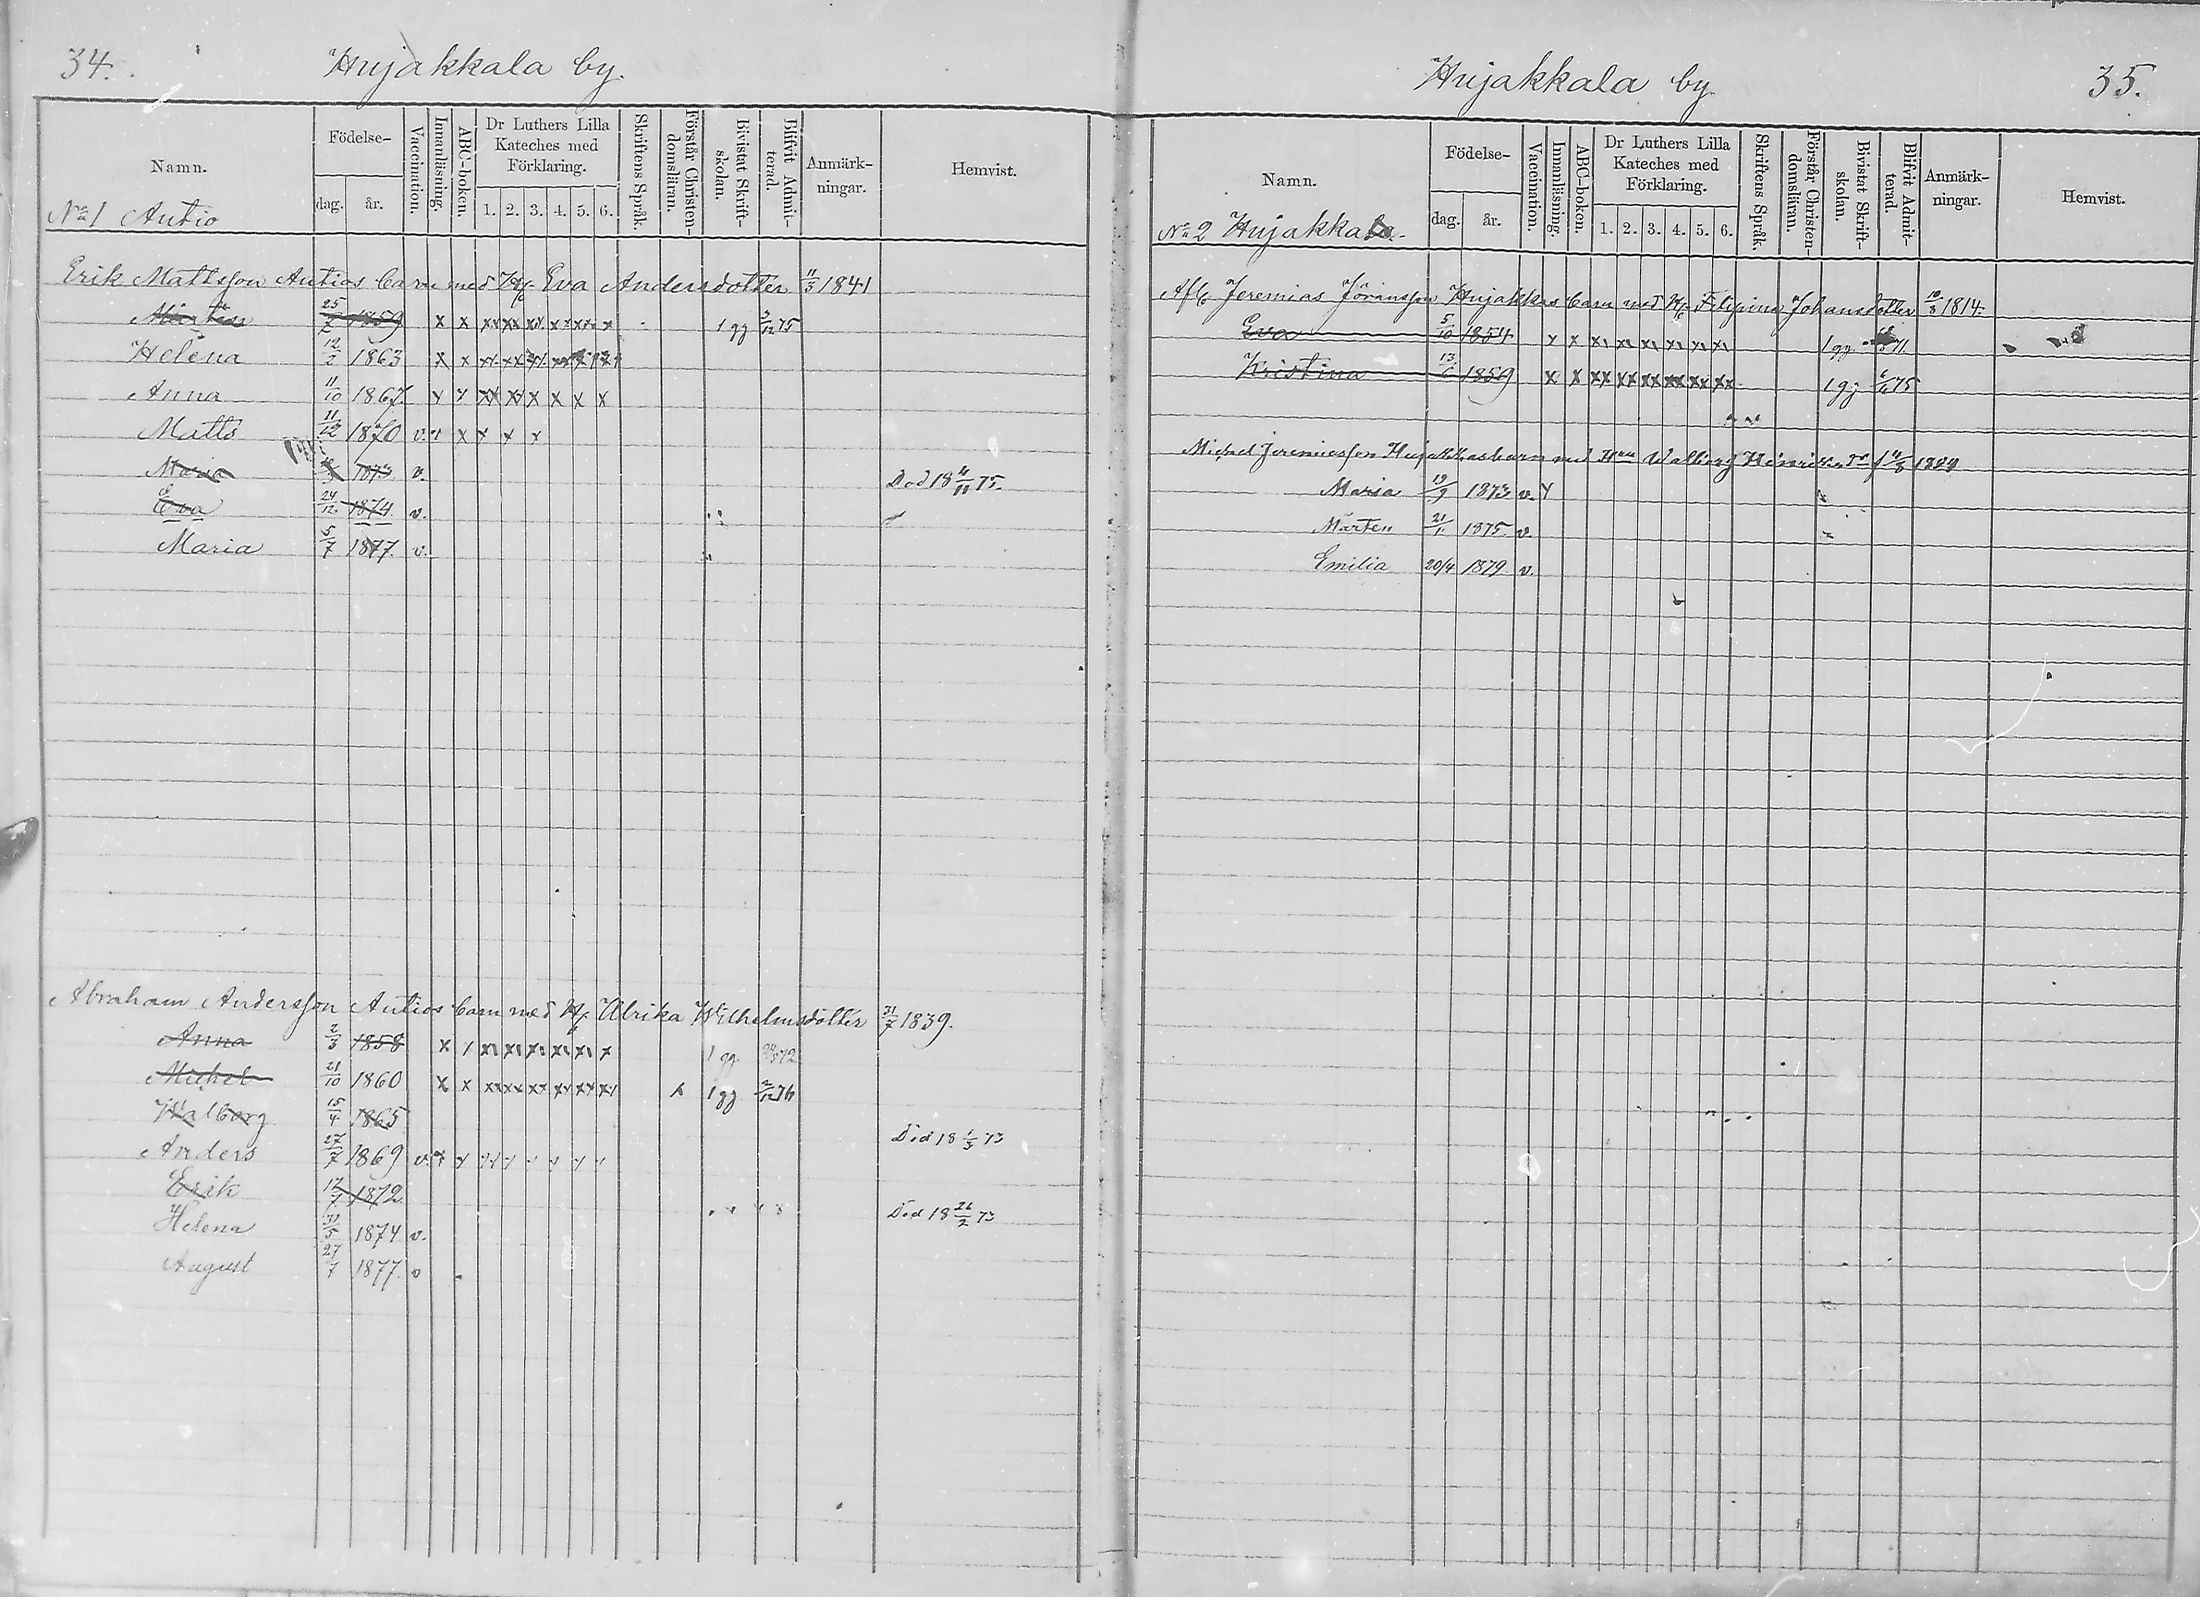 34.
Hujakkala by.
Namn.
Födelse-
dag. år.
Vaccination.
Innanläsning.
ABC-boken.
Dr Luthers Lilla Kateches med Förklaring.
1. 2. 3. 4. 5. 6.
Skriftens Språk.
Förstår Christen-domsläran.
Bivistat Skrift-skolan.
Blifvit Admit-terad.
Anmärk-ningar.
Hemvist.
No 1 Autio
Erik Mattsson Autios barn med H/f Eva Andersdotter 11/3 1841
Mårten 25/2 1859 x x xx xx xx xx xx x 1 gg 5/12 75
Helena 12/2 1863 x x xx xx xx
Anna 11/10 1867 x x xx xx x x x x
Matts 11/12 1870 v. x x x x x
Maria 1873 v. Död 18 /11 75.
Eva 24/12 1874 v.
Maria 5/7 1877. v.
Abraham Andersson Autios barn med H/f Ulrika Wilhelmsdotter 31/7 1839.
Anna 2/3 1858 x x x x x x x x 1 gg
Michel 21/10 1860 x x xx xx xx xx xx xx x 1 gg 2/12 76
Walborg 15/4 1865 Död 18 1/3 73
Anders 27/7 1869 v.
Erik 1872 Död 18 26/2 73
Helena 31/5 1874 v.
August 27/7 1877. v
Hujakkala by.
35.
Namn.
Födelse-
dag. år.
Vaccination.
Innanläsning.
ABC-bokon.
Dr Luthers Lilla Kateches med Förklaring.
1. 2. 3. 4. 5. 6.
Skriftens Språk.
Förstår Christen-domsläran.
Bivistat Skrift-skolan.
Blifvit Admit-terad.
Anmärk-ningar.
Hemvist.
No 2 Hujakka
Afl. Jeremias Jöransson Hujakkas barn med H/f Filipina Johansdotter 10/3 1814.
Eva 5/10 1854 x x x x x x x x 1 gg 71.
Kristina 13/6 1859 x x xx xx xx xx xx xx 1 gg 75
Michel Jeremiasson Hujakkas barn med Walborg Henriksdr
Maria 19/9 1873 v.
Mårten 21/11 1875. v.
Emilia 20/4 1879 v.